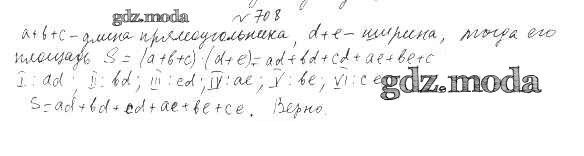 gdz.moda №708
a+b+c - длина прямоугольника, d+e - ширина, тогда его
площадь S = (a+b+c)·(d+e) = ad+bd+cd+ae+be+c
I: ad, II: bd; III: cd; IV: ae; V: be; VI: ce gdz.moda
S=ad+bd+cd+ae+be+ce. Верно.